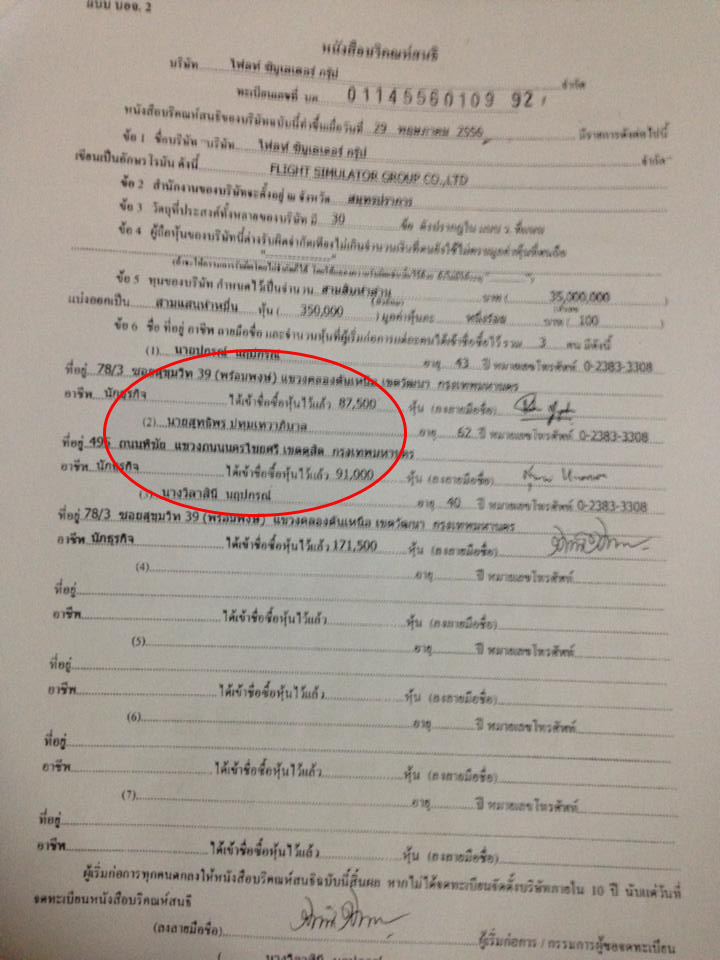 แบบ บอจ. 2
หนังสือบริคณห์สนธิ
บริษัท ไฟลท์ ซิมูเลเตอร์ กรุ๊ป จำกัด
ทะเบียนเลขที่ บค. 01145560109 92
หนังสือบริคณห์สนธิของบริษัทฉบับนี้ทำขึ้นเมื่อวันที่ 29 พฤษภาคม 2556 มีรายการดังต่อไปนี้
ข้อ 1 ชื่อบริษัท "บริษัท ไฟลท์ ซิมูเลเตอร์ กรุ๊ป จำกัด"
เขียนเป็นอักษรโรมัน ดังนี้ FLIGHT SIMULATOR GROUP CO.,LTD
ข้อ 2 สำนักงานของบริษัทจะตั้งอยู่ ณ จังหวัด สมุทรปราการ
ข้อ 3 วัตถุที่ประสงค์ทั้งหลายของบริษัท มี 30 ข้อ ดังปรากฏในแบบ ว. ที่แนบ
ข้อ 4 ผู้ถือหุ้นของบริษัทนี้ต่างรับผิดจำกัดเพียงไม่เกินจำนวนเงินที่ตนยังใช้ไม่ครบมูลค่าหุ้นที่ตนถือ
ข้อ 5 ทุนของบริษัท กำหนดไว้เป็นจำนวน สามสิบห้าล้าน บาท ( 35,000,000 )
แบ่งออกเป็น สามแสนห้าหมื่น หุ้น ( 350,000 ) มูลค่าหุ้นละ หนึ่งร้อย บาท ( 100 )
ข้อ 6 ชื่อ ที่อยู่ อาชีพ ลายมือชื่อ และจำนวนหุ้นที่ผู้เริ่มก่อการแต่ละคนได้เข้าชื่อซื้อไว้ รวม 3 คน มีดังนี้
(1) นายปกรณ์ นฤปกรณ์ อายุ 43 ปี หมายเลขโทรศัพท์ 0-2383-3308
ที่อยู่ 78/3 ซอยสุขุมวิท 39 (พร้อมพงษ์) แขวงคลองตันเหนือ เขตวัฒนา กรุงเทพมหานคร
อาชีพ นักธุรกิจ ได้เข้าชื่อซื้อหุ้นไว้แล้ว 87,500 หุ้น (ลงลายมือชื่อ)
(2) นายสุทธิพร ปทุมเทวาภิบาล อายุ 62 ปี หมายเลขโทรศัพท์ 0-2383-3308
ที่อยู่ 495 ถนนพิชัย แขวงถนนนครไชยศรี เขตดุสิต กรุงเทพมหานคร
อาชีพ นักธุรกิจ ได้เข้าชื่อซื้อหุ้นไว้แล้ว 91,000 หุ้น (ลงลายมือชื่อ)
(3) นางวิลาสินี นฤปกรณ์ อายุ 40 ปี หมายเลขโทรศัพท์ 0-2383-3308
ที่อยู่ 78/3 ซอยสุขุมวิท 39 (พร้อมพงษ์) แขวงคลองตันเหนือ เขตวัฒนา กรุงเทพมหานคร
อาชีพ นักธุรกิจ ได้เข้าชื่อซื้อหุ้นไว้แล้ว 171,500 หุ้น (ลงลายมือชื่อ)
(4) อายุ ปี หมายเลขโทรศัพท์
ที่อยู่
อาชีพ ได้เข้าชื่อซื้อหุ้นไว้แล้ว หุ้น (ลงลายมือชื่อ)
(5) อายุ ปี หมายเลขโทรศัพท์
ที่อยู่
อาชีพ ได้เข้าชื่อซื้อหุ้นไว้แล้ว หุ้น (ลงลายมือชื่อ)
(6) อายุ ปี หมายเลขโทรศัพท์
ที่อยู่
อาชีพ ได้เข้าชื่อซื้อหุ้นไว้แล้ว หุ้น (ลงลายมือชื่อ)
(7) อายุ ปี หมายเลขโทรศัพท์
ที่อยู่
อาชีพ ได้เข้าชื่อซื้อหุ้นไว้แล้ว หุ้น (ลงลายมือชื่อ)
ผู้เริ่มก่อการทุกคนตกลงให้หนังสือบริคณห์สนธิฉบับนี้สิ้นผล หากไม่ได้จดทะเบียนจัดตั้งบริษัทภายใน 10 ปี นับแต่วันที่
จดทะเบียนหนังสือบริคณห์สนธิ
(ลงลายมือชื่อ) ผู้เริ่มก่อการ / กรรมการผู้ขอจดทะเบียน
( นางวิลาสินี นฤปกรณ์